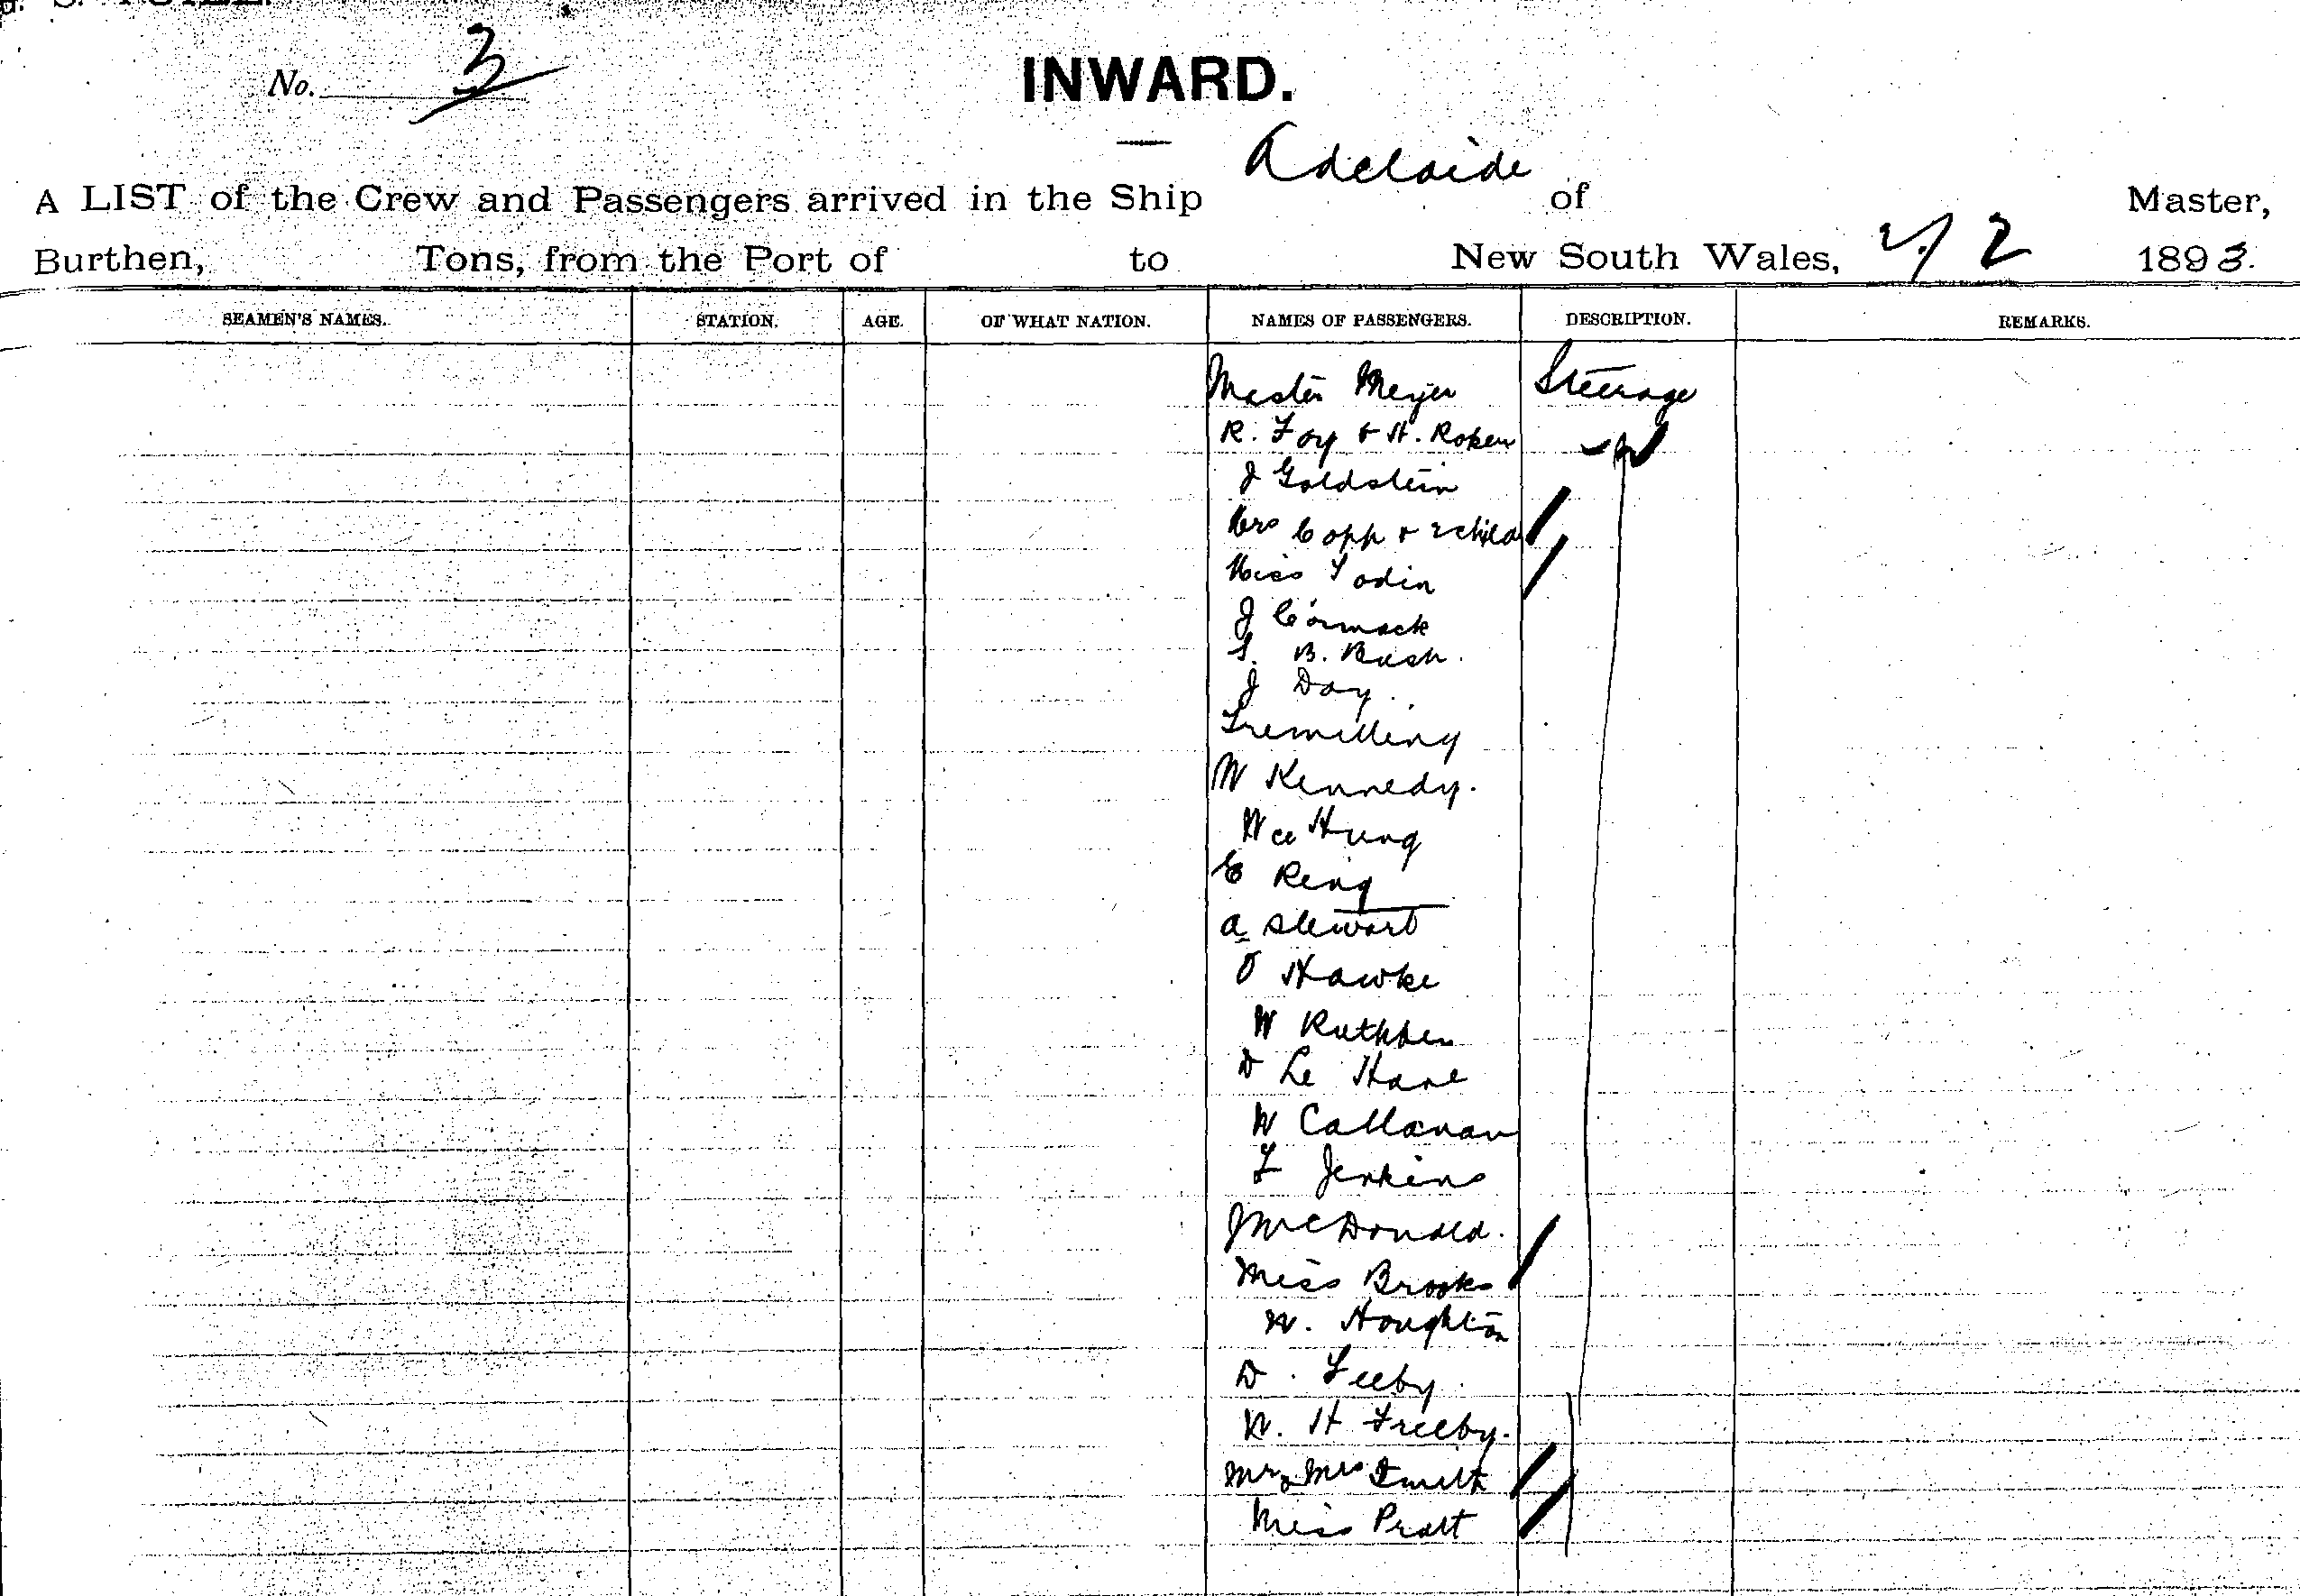 No. 3
INWARD.
A LIST of the Crew and Passengers arrived in the Ship Adelaide of Master,
Burthen, Tons, from the Port of to New South Wales, 2/2 1893.
SEAMEN'S NAMES. STATION. AGE. OF WHAT NATION. NAMES OF PASSENGERS. DESCRIPTION. REMARKS.
Master Meyer Steerage
R. Foy & H. Roken
J Goldstein
Mrs Copp & 2 child
Miss Todin
J Cormack
S. B. Bush.
J Day.
Tremilling
W Kennedy.
Wee Hung
E Ring
A Stewart
O Hawke
W Ruthben
D Le Hane
W Callanan
F Jenkins
J McDonald.
Miss Brooks
W. Houghton
D. Feeby.
W. H Freeby.
Mr & Mrs Smith
Miss Pratt